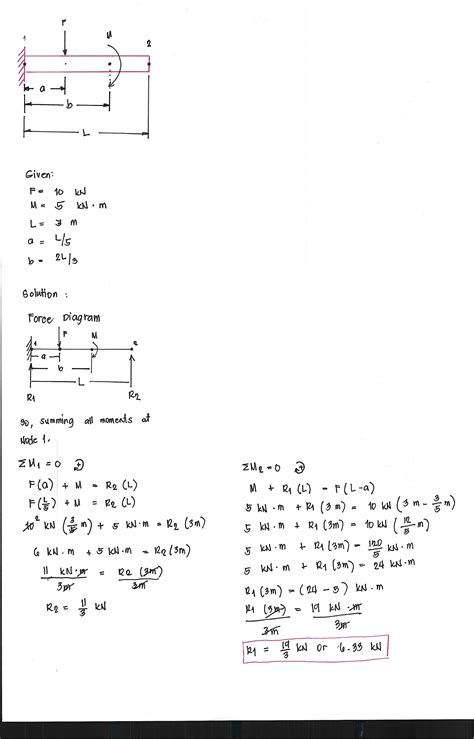 F
1
M
2
a
b
L
Given:
F = 10 kN
M = 5 kN·m
L = 3 m
a = L/5
b = 2L/3
Solution :
Force Diagram
F
1
M
2
a
b
L
R1
R2
so, summing all moments at
Node 1.
ΣM1 = 0
F(a) + M = R2 (L)
F(L/5) + M = R2 (L)
10² kN (3/5 m) + 5 kN·m = R2 (3m)
6 kN·m + 5 kN·m = R2 (3m)
11 kN·m / 3m = R2 (3m) / 3m
R2 = 11/3 kN
ΣM2 = 0
M + R1 (L) = F(L-a)
5 kN·m + R1 (3m) = 10 kN (3m - 3/5 m)
5 kN·m + R1 (3m) = 10 kN (12/5 m)
5 kN·m + R1 (3m) = 120/5 kN·m
5 kN·m + R1 (3m) = 24 kN·m
R1 (3m) = (24 - 5) kN·m
R1 (3m) / 3m = 19 kN·m / 3m
R1 = 19/3 kN or 6.33 kN